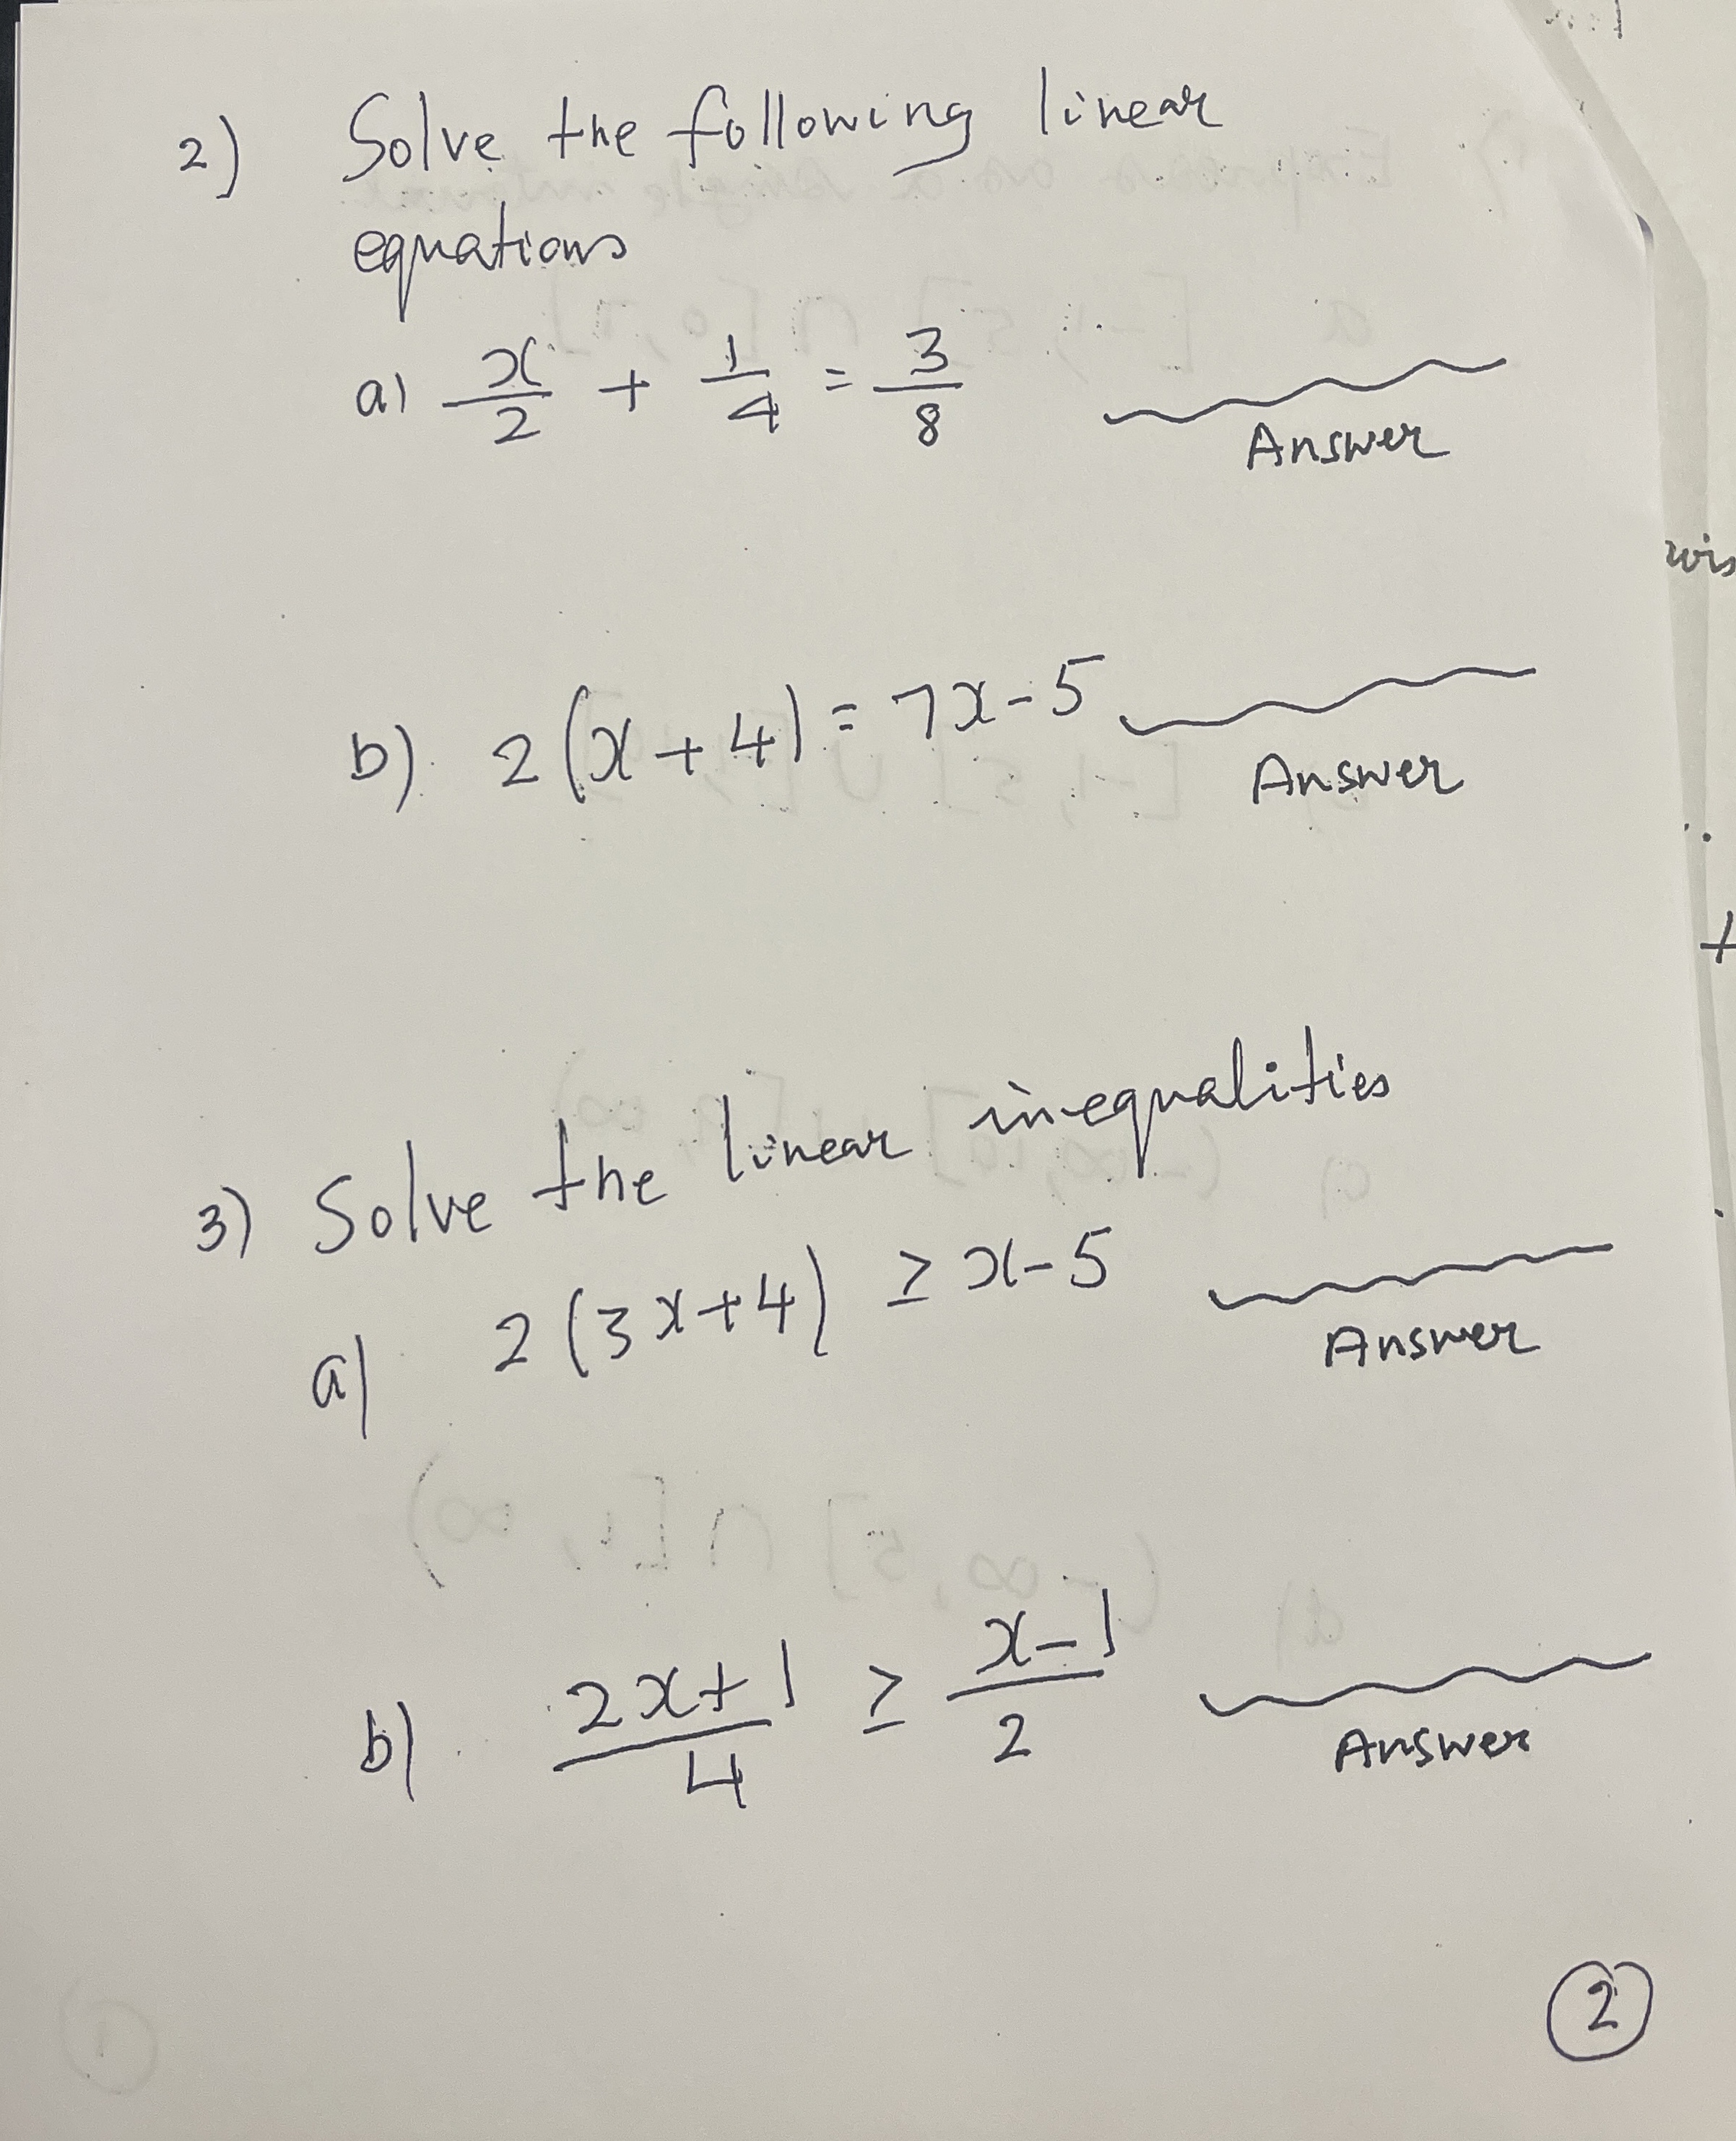 2) Solve the following linear
equations
a) x/2 + 1/4 = 3/8
Answer
b) 2(x+4) = 7x-5
Answer
3) Solve the linear inequalities
a) 2(3x+4) ≥ x-5
Answer
b) 2x+1/4 ≥ x-1/2
Answer
2